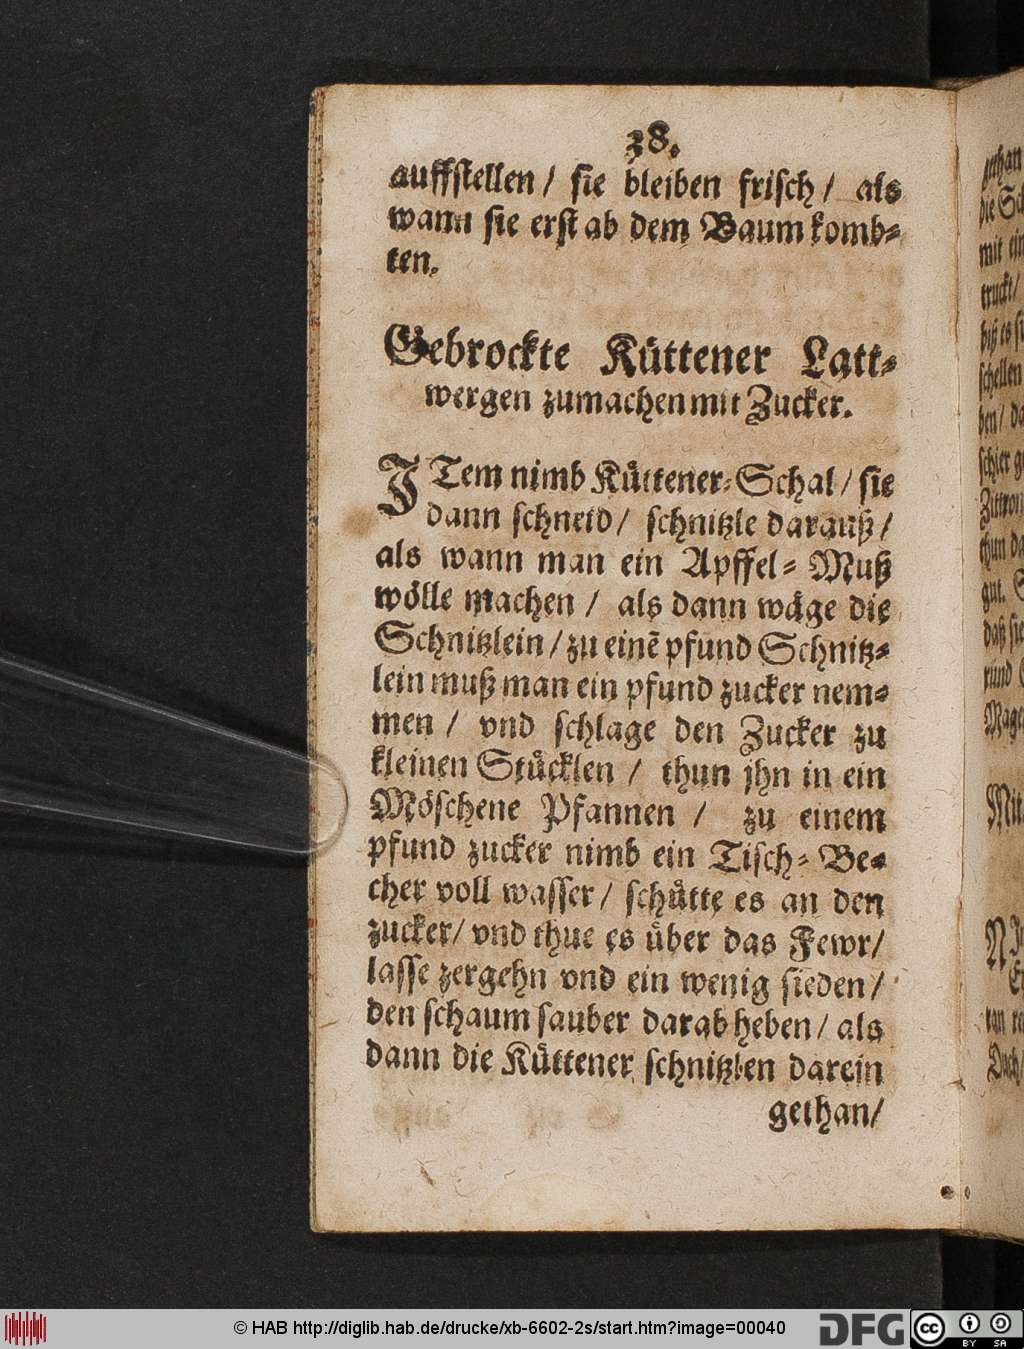 38.
auffstellen / sie bleiben frisch / als
wann sie erst ab dem Baum komb-
ten.
Gebrockte Küttener Latt-
wergen zumachen mit Zucker.
ITem nimb Küttener-Schal / sie
dann schneid / schnitzle darauß /
als wann man ein Apffel-Muß
wölle machen / als dann wäge die
Schnitzlein / zu einē pfund Schnitz-
lein muß man ein pfund zucker nem-
men / vnd schlage den Zucker zu
kleinen Stücklen / thun jhn in ein
Möschene Pfannen / zu einem
pfund zucker nimb ein Tisch-Be-
cher voll wasser / schütte es an den
zucker / vnd thue es über das Fewr /
lasse zergehn vnd ein wenig sieden /
den schaum sauber darab heben / als
dann die Küttener schnitzlen darein
gethan /
© HAB http://diglib.hab.de/drucke/xb-6602-2s/start.htm?image=00040
DFG
cc BY SA